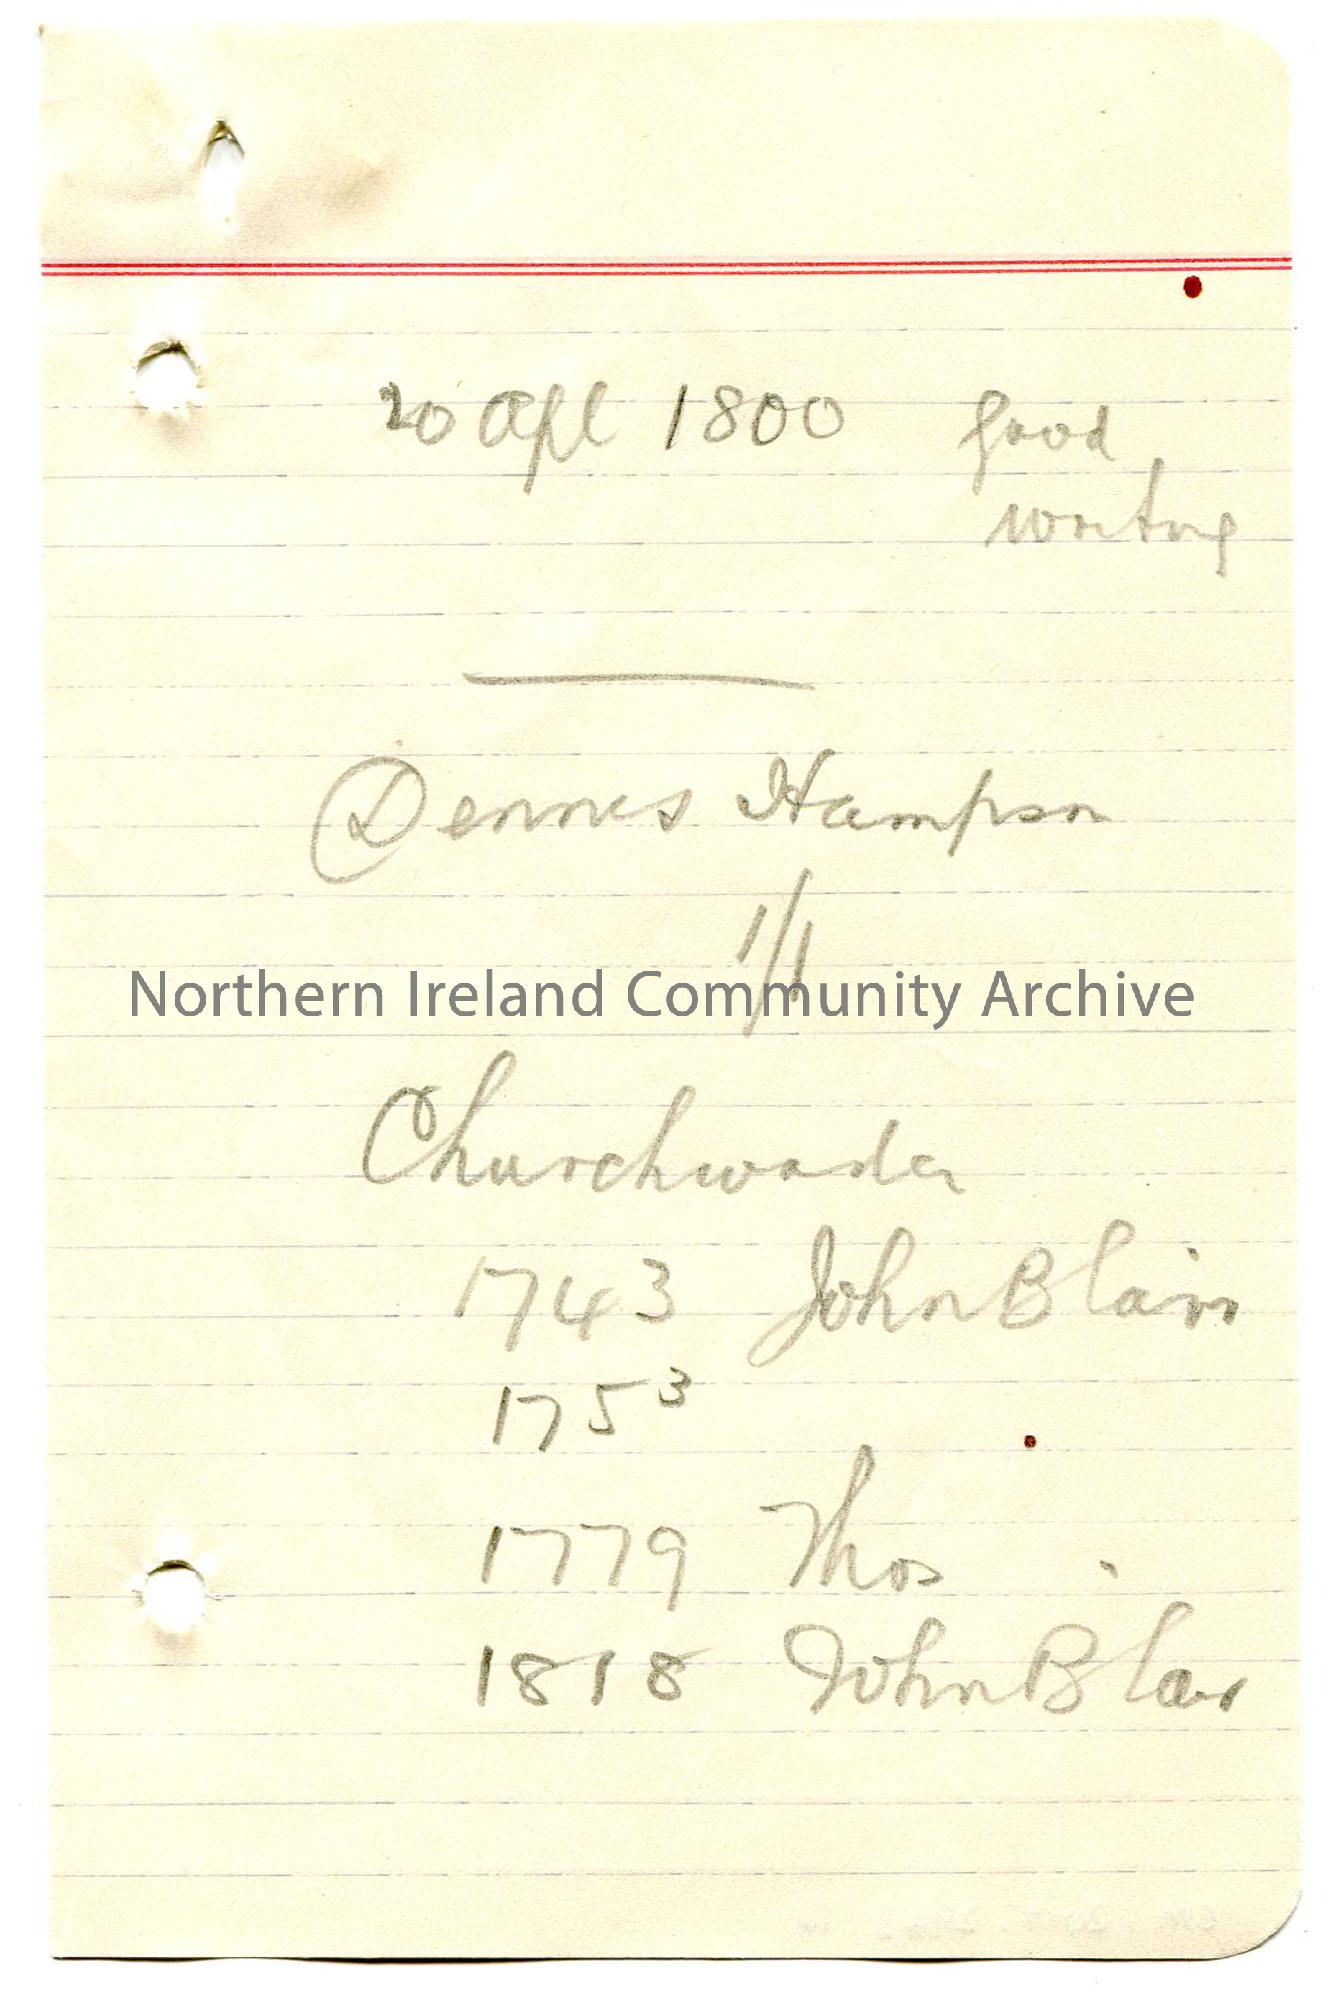 20 Apl 1800 good
writing
Dennis Hampson
1/1
Northern Ireland Community Archive
Churchwarden
1743 John Blair
1753
1779 Thos
1818 John Blair